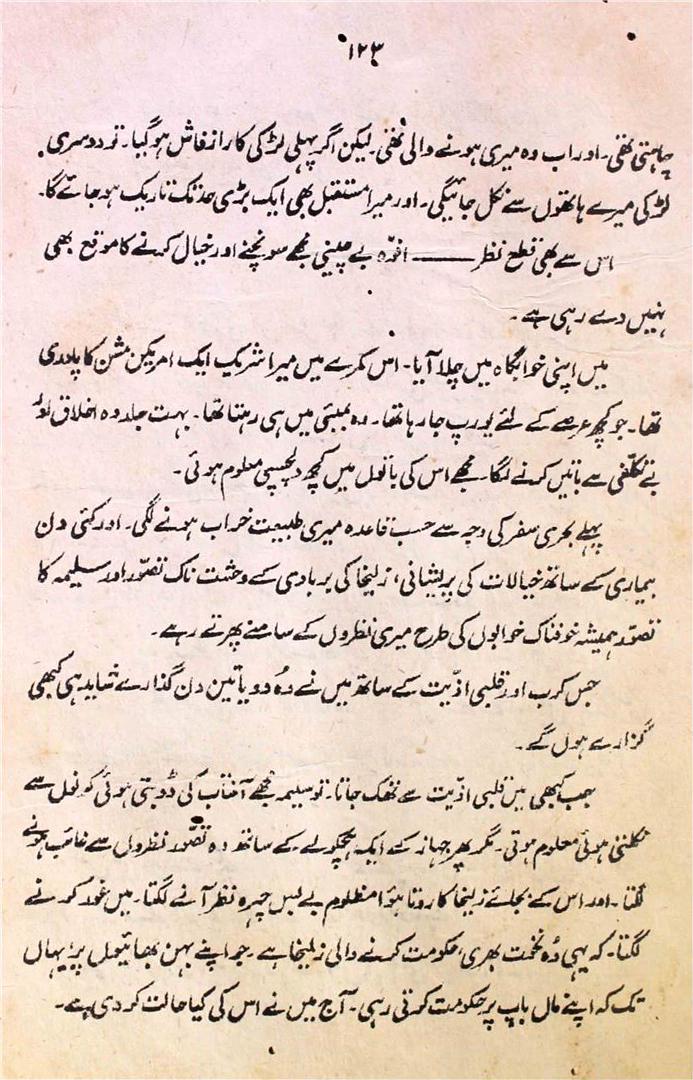 ۱۲۳
چاہتی تھی۔ اور اب وہ میری ہونے والی تھی۔ لیکن اگر پہلی لڑکی کا راز فاش ہو گیا۔ تو دوسری
لڑکی میرے ہاتھوں سے نکل جائیگی۔ اور میرا مستقبل بھی ایک بڑی حد تک تاریک ہو جائے گا۔
اس سے بھی قطع نظر ــــــ افوہ بے چینی مجھے سونچنے اور خیال کرنے کا موقع بھی
نہیں دے رہی ہے۔
میں اپنی خوابگاہ میں چلا آیا۔ اس کمرے میں میرا شریک ایک امریکن مشن کا پادری
تھا۔ جو کچھ عرصے کے لئے یورپ جا رہا تھا۔ وہ بمبئی میں ہی رہتا تھا۔ بہت جلد وہ اخلاق اور
بے تکلّفی سے باتیں کرنے لگا۔ مجھے اس کی باتوں میں کچھ دلچسپی معلوم ہوئی۔
پہلے بحری سفر کی وجہ سے حسب قاعدہ میری طبیعت خراب ہونے لگی۔ اور کئی دن
بیماری کے ساتھ خیالات کی پریشانی، زلیخا کی بربادی کے وحشت ناک تصوّر اور سلیمہ کا
تصوّر ہمیشہ خوفناک خوابوں کی طرح میری نظروں کے سامنے پھرتے رہے۔
جس کرب اور قلبی اذیّت کے ساتھ میں نے وُہ دو یا تین دن گذارے شاید ہی کبھی
گزارے ہوں گے۔
جب کبھی میں قلبی اذیّت سے تھک جاتا۔ تو سلیمہ مجھے آفتاب کی ڈوبتی ہوئی کرنوں سے
نکلتی ہوئی معلوم ہوتی۔ مگر پھر جہاز کے ایک ہچکولے کے ساتھ وہ تصّور نظروں سے غائب ہونے
لگتا۔ اور اس کے بجائے زلیخا کا روتا ہؤا مظلوم بے بس چہرہ نظر آنے لگتا۔ میں غور کرنے
لگتا۔ کہ یہی وُہ نخوت بھری، حکومت کرنے والی زلیخا ہے۔ جو اپنے بہن بھائیوں پر، یہاں
تک کہ اپنے ماں باپ پر حکومت کرتی رہی۔ آج میں نے اس کی کیا حالت کر دی ہے۔